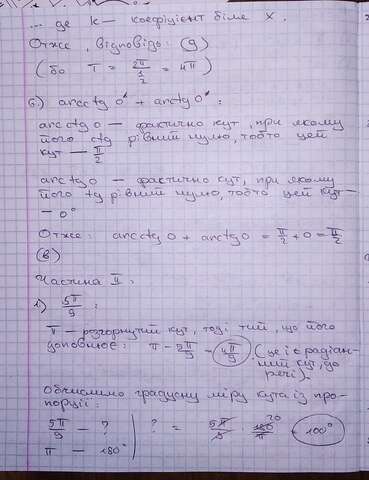 ... де k — коефіцієнт біля x.
Отже, відповідь: (g)
(бо T = 2π / 1/2 = 4π)
6) arcctg 0 + arctg 0 :
arcctg 0 — фактично кут, при якому
його ctg рівний нулю, тобто цей
кут — π/2
arctg 0 — фактично кут, при якому
його tg рівний нулю, тобто цей кут —
— 0°
Отже: arcctg 0 + arctg 0 = π/2 + 0 = π/2
(в)
Частина II:
1) 5π/9 :
π — розгорнутий кут, тоді той, що його
доповнює: π - 5π/9 = 4π/9 (це і є радіан-
ний кут, до
речі).
Обчислимо градусну міру кута із про-
порції:
5π/9 — ? | ? = 5π/9 · 180/π 20 = 100°
π — 180°